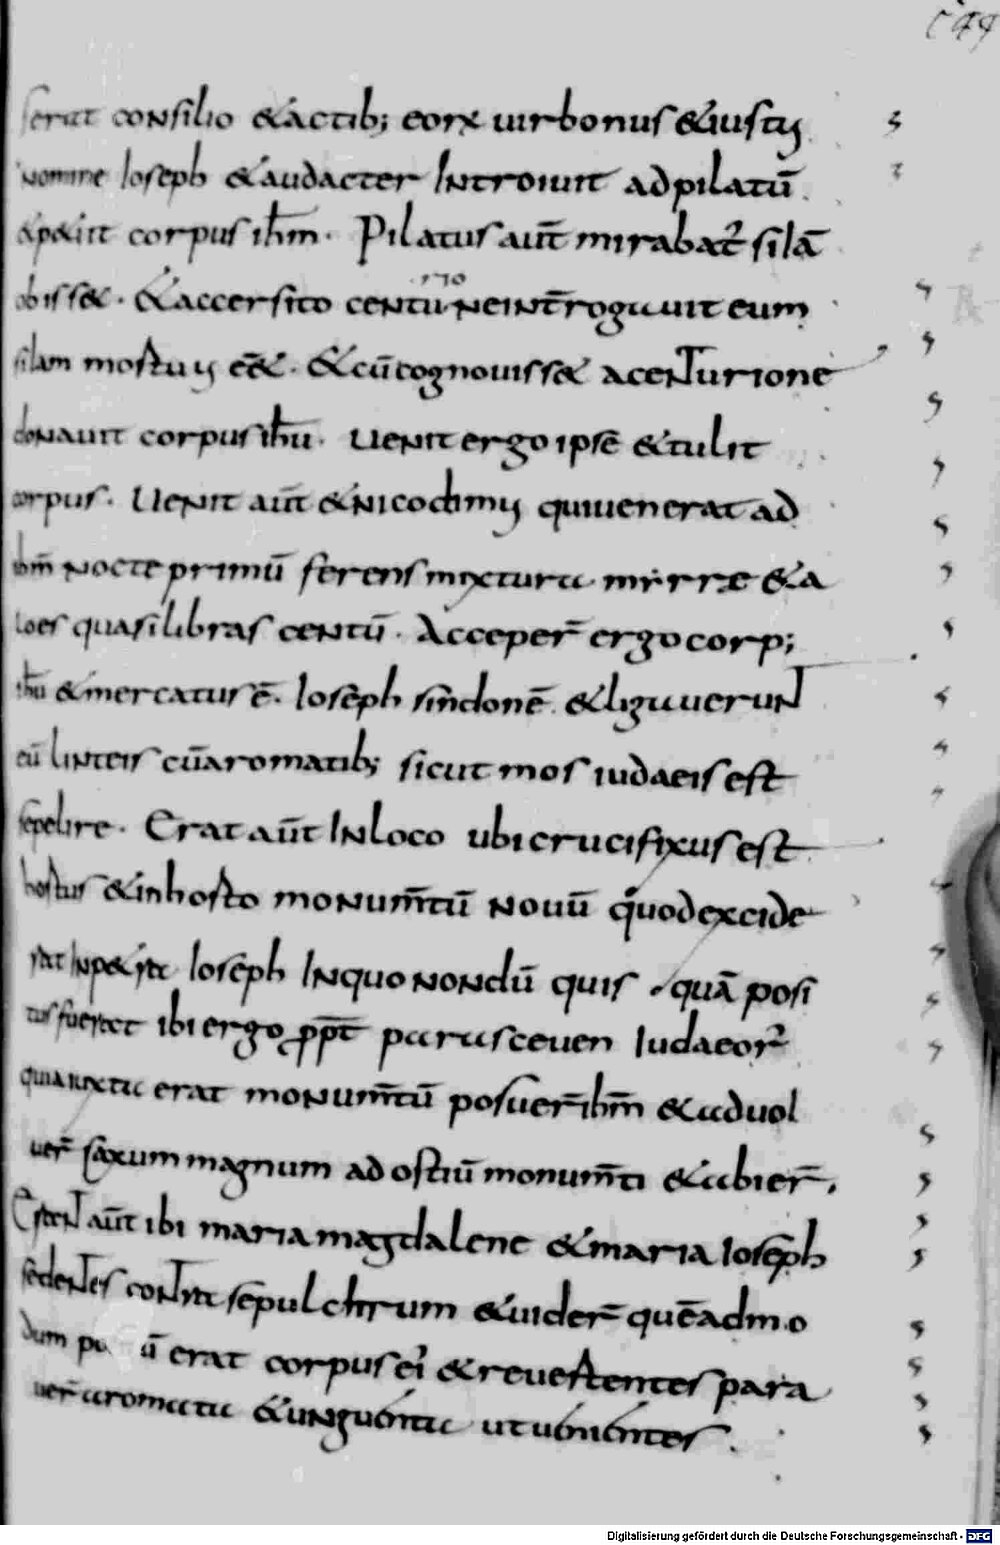 serat consilio & actib; eorꝝ uir bonus & iustus
nomine Ioseph & audacter Introiuit ad pilatū.
& p&iit corpus ihm̄. Pilatus aut̄ mirabat̄ si iā
obiss&. & accersito centurione int̄rogauit eum
si iam mortuus ēē&. & cū cognouiss& a centurione
donauit corpus ihū. Uenit ergo ipse & tulit
corpus. Uenit aut̄ & nicodimus qui uenerat ad
ihm̄ nocte primū ferens mixtura mirræ & a
loes quasi libras centū. Acceper̄ ergo corp;
ihū & mercatus ē. Ioseph sindonē. & ligauerunt
eū linteis cū aromatib; sicut mos iudaeis est
sepelire. Erat aut̄ In loco ubi crucifixus est
hortus & in horto monum̄tū nouū quod excide
rat In p&ra Ioseph In quo nondū quis quā posi
tus fuerat ibi ergo ꝓpt̄ parasceuen Iudaeor̄
quia iuxta erat monum̄tū posuer̄ ihm̄ & aduol
uer̄ saxum magnum ad ostiū monum̄ti & abier̄.
Erant aut̄ ibi maria magdalene & maria Ioseph
sedentes contra sepulchrum & uider̄ quē ad mo
dum po ū erat corpus ei & reuertentes para
uer̄ aromata & unguenta ut ub
Digitalisierung gefördert durch die Deutsche Forschungsgemeinschaft - DFG